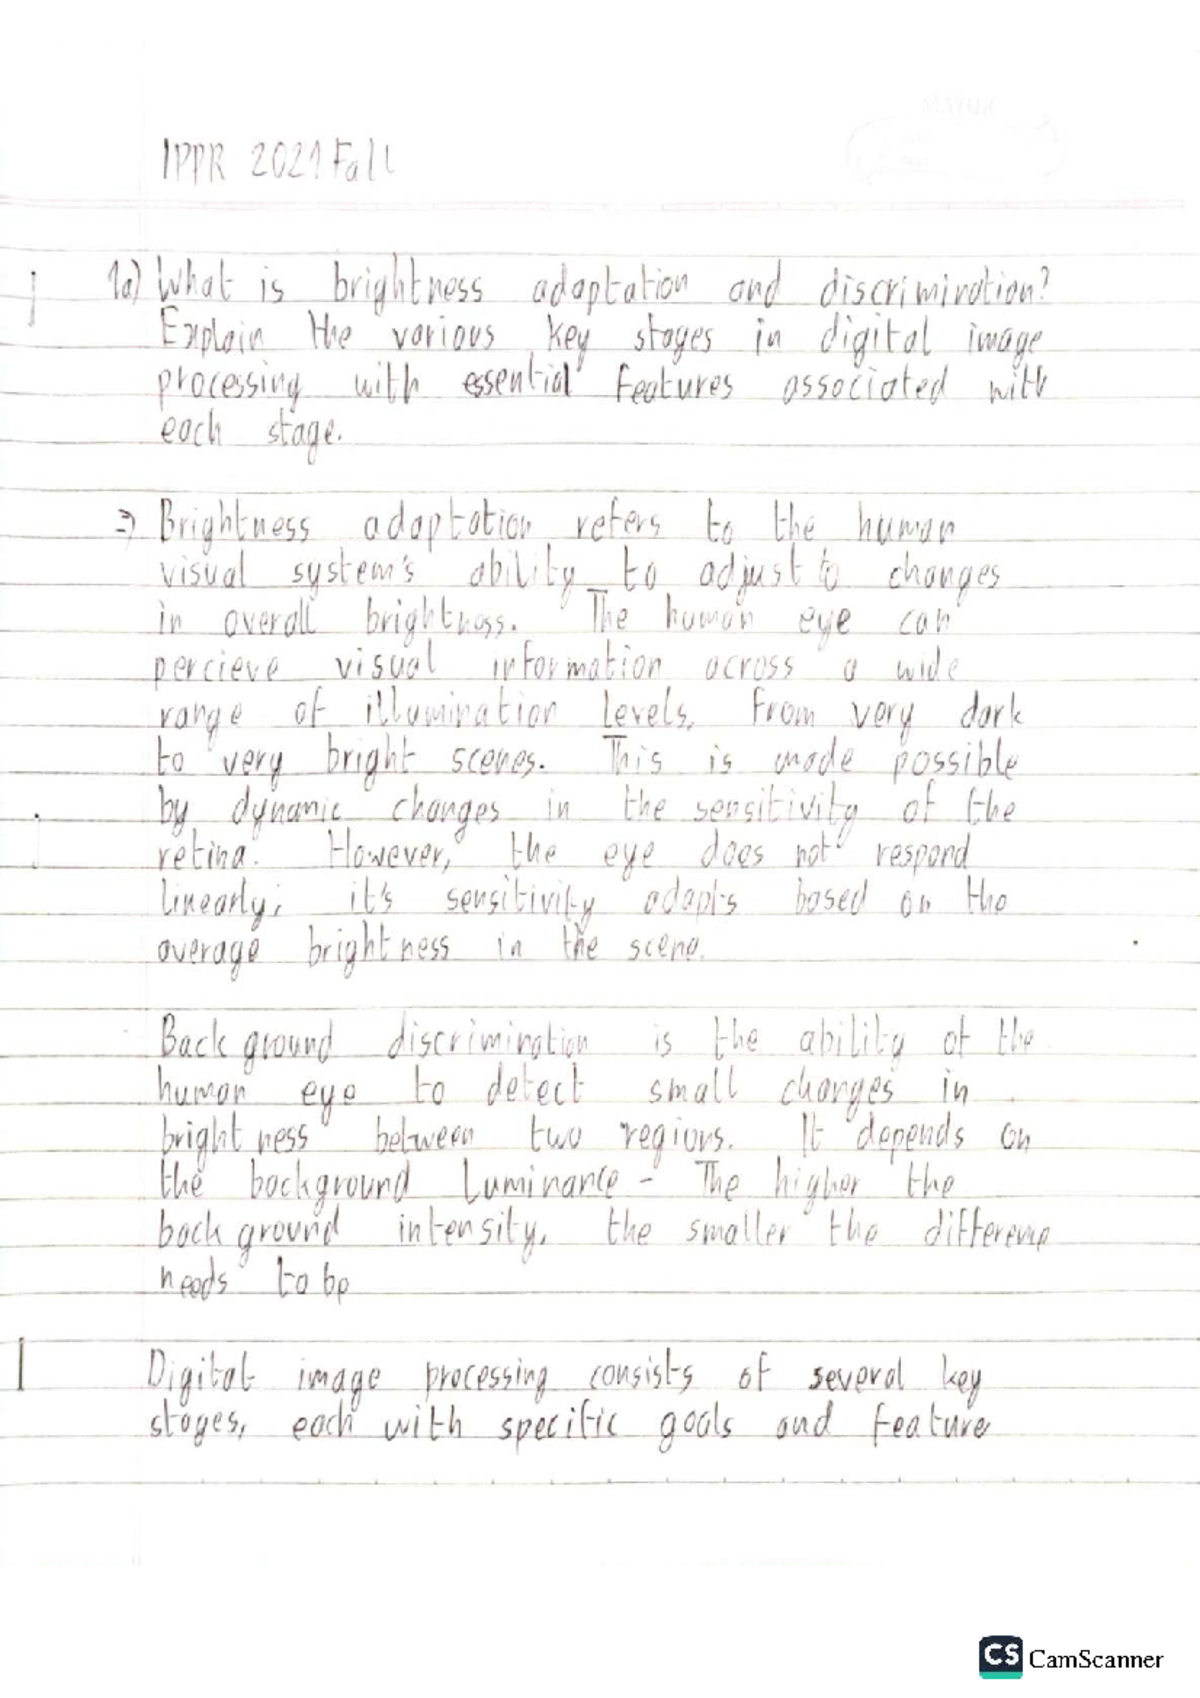 IPPR 2021 Fall
1a) What is brightness adaptation and discrimination?
Explain the various key stages in digital image
processing with essential features associated with
each stage.
⇒ Brightness adaptation refers to the human
visual system's ability to adjust to changes
in overall brightness. The human eye can
percieve visual information across a wide
range of illumination levels, from very dark
to very bright scenes. This is made possible
by dynamic changes in the sensitivity of the
retina. However, the eye does not respond
linearly; it's sensitivity adapts based on the
average brightness in the scene.
Background discrimination is the ability of the
human eye to detect small changes in
brightness between two regions. It depends on
the background luminance - The higher the
background intensity, the smaller the difference
needs to be
Digital image processing consists of several key
stages, each with specific goals and feature
CS CamScanner